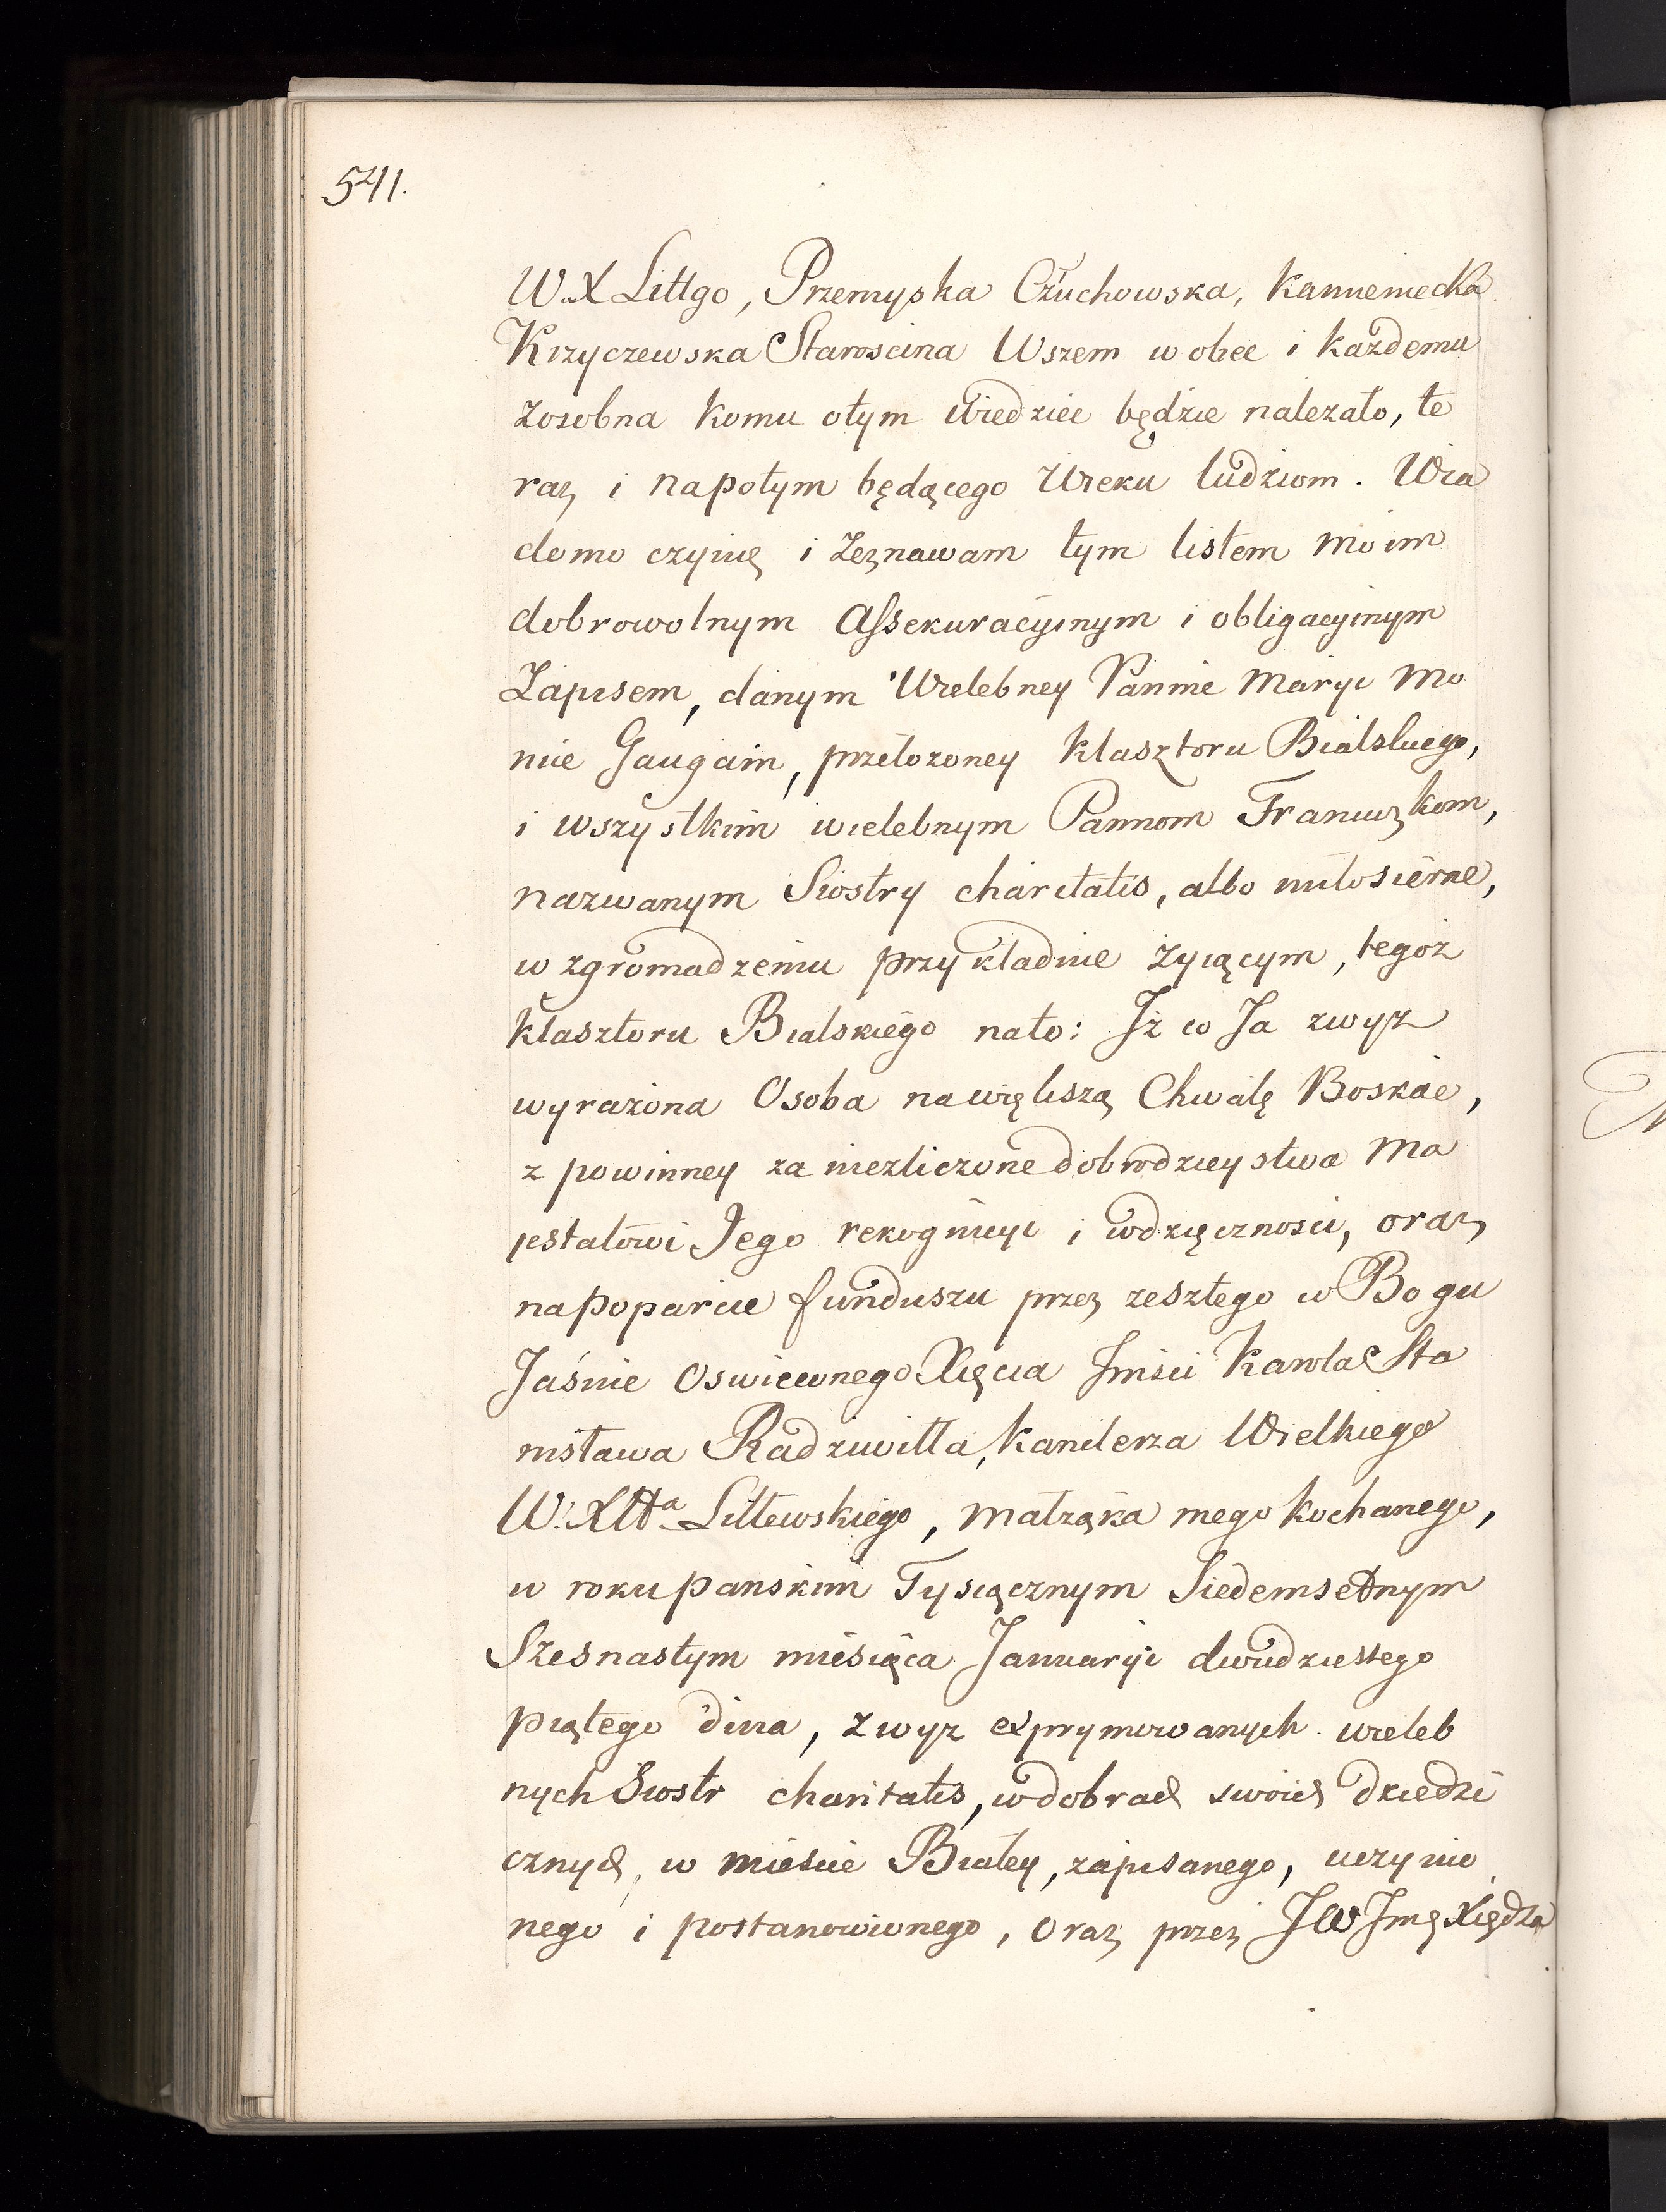 541.
W.X Littgo, Przemyska Człuchowska, Kamieniecka
Krzyczewska Starościna Wszem w obec i każdemu
zosobna komu otym wiedziec będzie nalezało, te
raz i napotym będącego wieku ludziom. Wia
domo czynię i zeznawam tym listem moim
dobrowolnym Assekuracyinym i obligacyinym
Zapisem, danym Wielebney Pannie Maryi Mo
nice Gaugain, przełozoney klasztoru Bialskiego,
i wszystkim wielebnym Pannom Francuzkom,
nazwanym Siostry charitatis, albo miłosierne,
w zgromadzeniu przykładnie żyiącym, tegoż
klasztoru Bialskiego nato: Iż co Ja zwyz
wyrażona Osoba nawiększą Chwałę Boskae,
z powinney za niezliczone dobrodzieystwa Ma
jestatowi Jego rekognicyi i wdzięcznosci, oraz
na poparcie funduszu przez zeszłego w Bogu
Jaśnie Oswieconego Xięcia Jmści Karola Sta
nisława Radziwiłła, Kanclerza Wielkiego
W. Xttа Littewskiego, małżąka mego kochanego,
w roku panskim Tysiącznym Siedemsetnym
Szesnastym miesiąca Januaryi dwudziestego
piątego dnia, zwyz exprymowanych wieleb
nych Siostr charitatis, w dobrach swoich dziedzi
cznych, w mieście Białey, zapisanego, uczynio
nego i postanowionego, oraz przez JW Jmę Xiędza